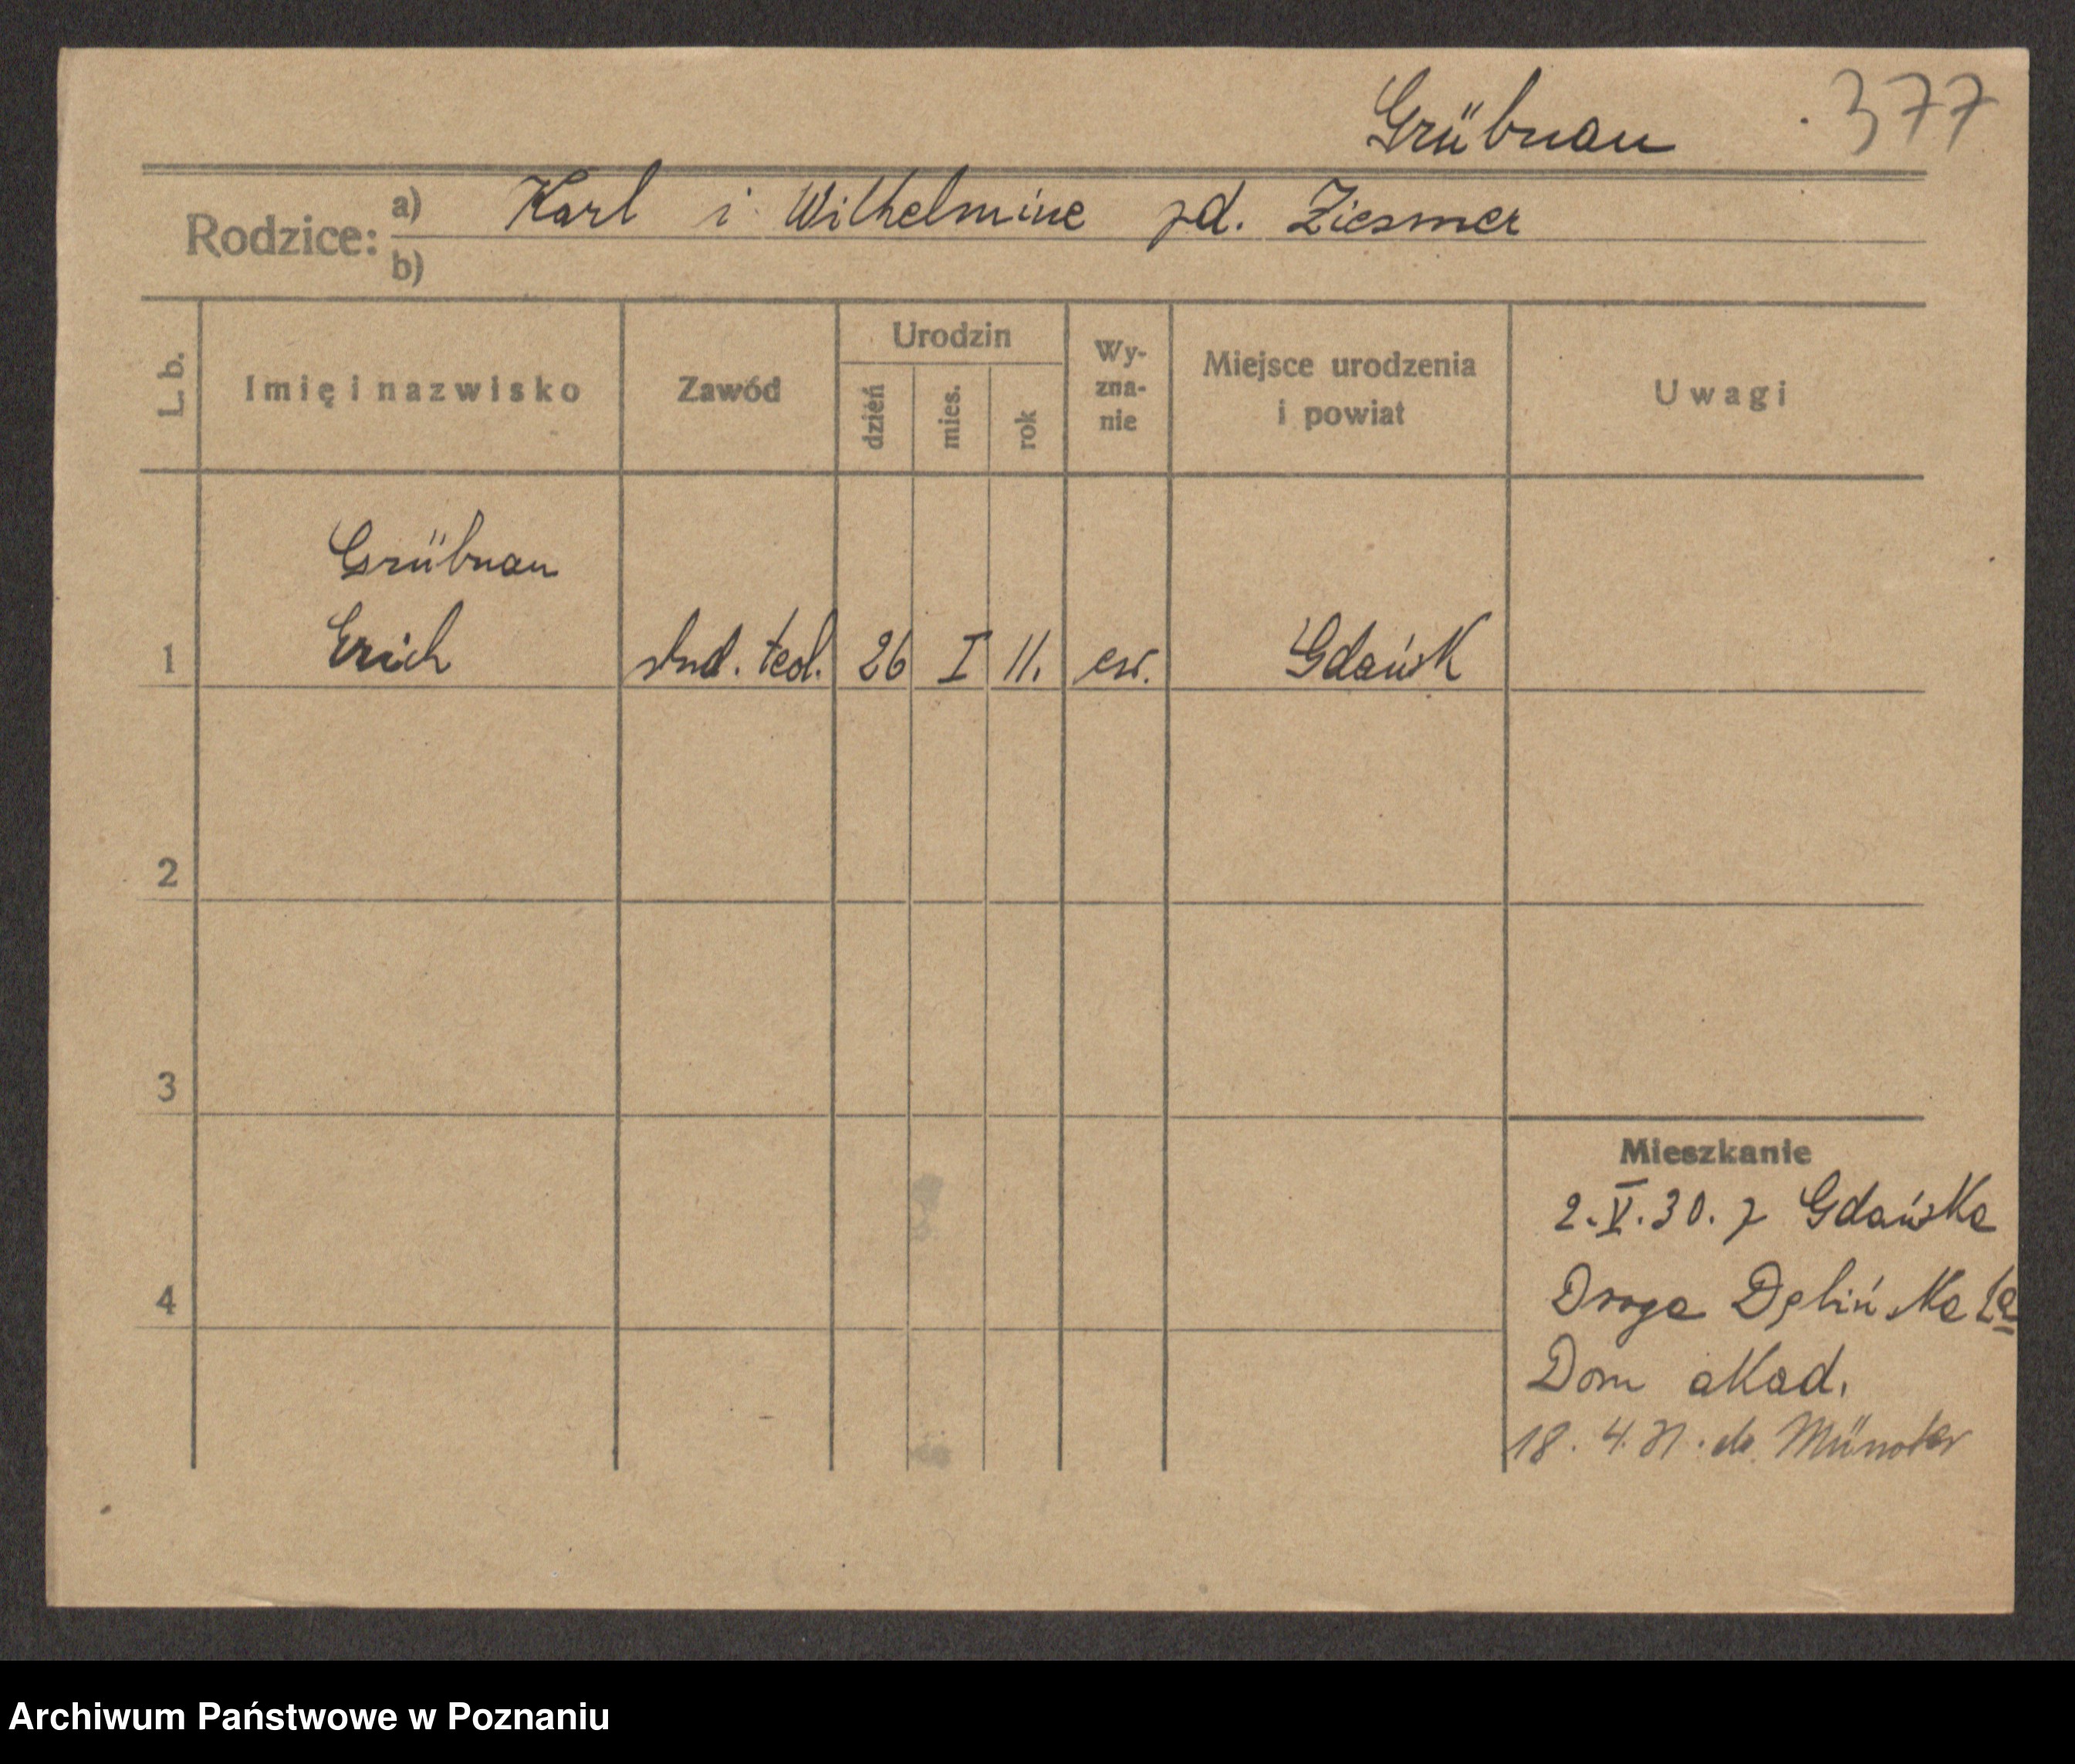 Grübnau 377
Rodzice: a) Karl i Wilhelmine zd. Ziesmer
b)
L. b. Imię i nazwisko Zawód Urodzin dzień mies. rok Wy-zna-nie Miejsce urodzenia i powiat Uwagi
Grübnau
1 Erich stud. teol. 26 I 11. ew. Gdańsk
2
3
Mieszkanie
2.V.30. z Gdańska
4 Droga Dębińska
Dom akad.
18. 4. 31. do Münster
Archiwum Państwowe w Poznaniu